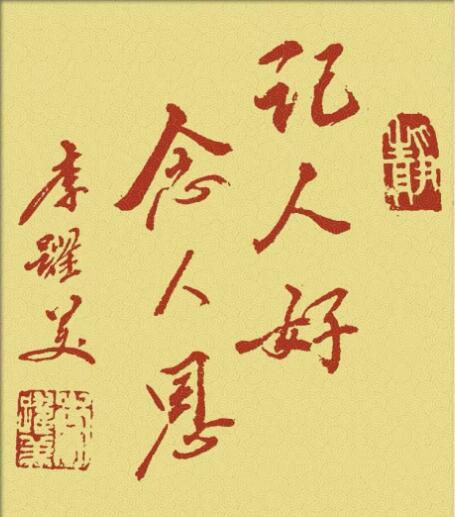 静
记人好
念人恩
李躍美